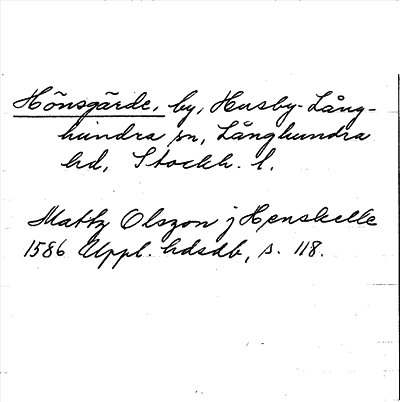 Hönsgärde, by, Husby-Lång-
hundra sn, Långhundra
hd, Stockh. l.
Mattz Olszon j Henskelle
1586 Uppl. hdsdb, s. 118.